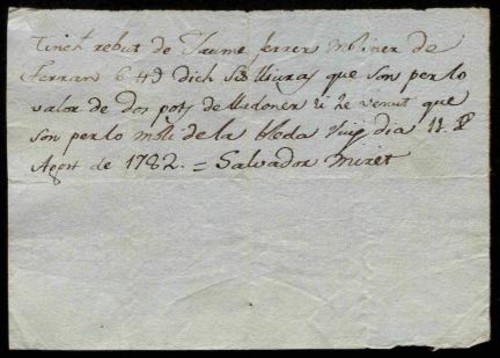 Tinch rebut de Jaume ferrer Moliner de
Ferran 6 ℔ dich Sis lliuras que son per lo
valor de dos pots de lladoner li he venut que
son per lo moli de la bleda Vuy dia 11 de
Agost de 1782. = Salvador Miret